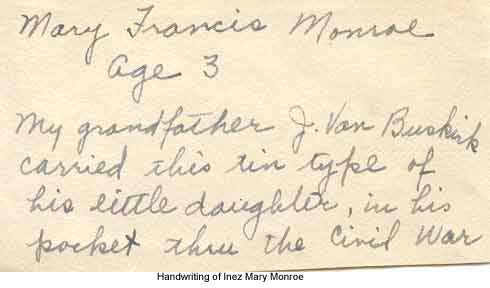 Mary Francis Monroe
Age 3
My grandfather J. Van Buskirk
carried this tin type of
his little daughter, in his
pocket thru the Civil War
Handwriting of Inez Mary Monroe